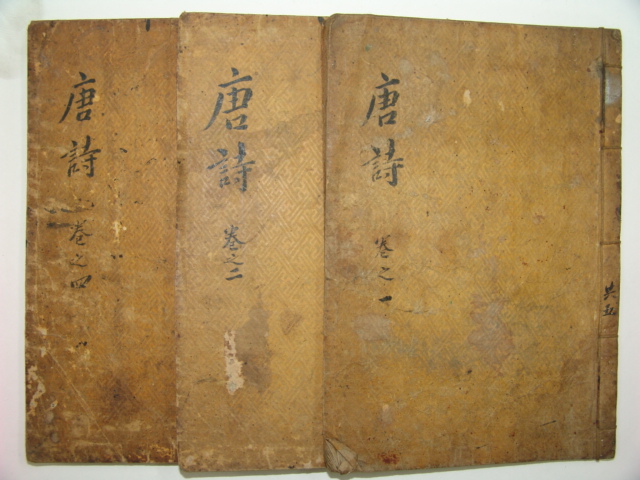 唐詩 卷之一
共五
唐詩 卷之二
唐詩 卷之四